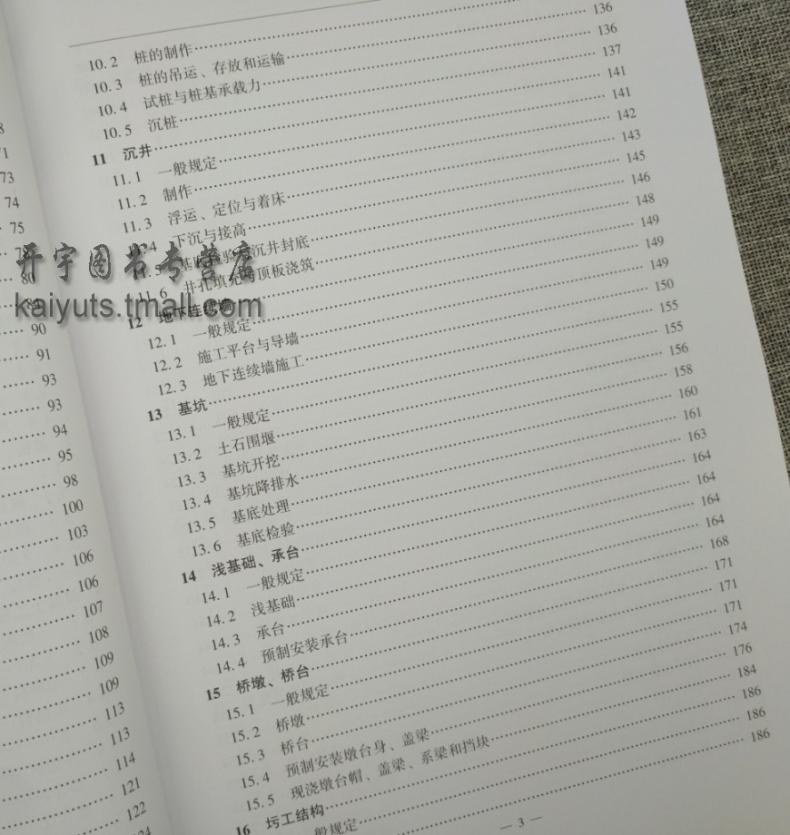 71
73
74
75
80
90
91
93
93
94
95
98
100
103
106
106
107
108
109
109
113
113
114
121
122
10.2 桩的制作
10.3 桩的吊运、存放和运输 136
10.4 试桩与桩基承载力 136
10.5 沉桩 137
11 沉井 141
11.1 一般规定 141
11.2 制作 142
11.3 浮运、定位与着床 143
下沉与接高 145
沉井封底 146
11.6 井孔填充与顶板浇筑 148
12 地下连续墙 149
12.1 一般规定 149
12.2 施工平台与导墙 149
12.3 地下连续墙施工 150
13 基坑 155
13.1 一般规定 155
13.2 土石围堰 156
13.3 基坑开挖 158
13.4 基坑降排水 160
13.5 基底处理 161
13.6 基底检验 163
14 浅基础、承台 164
14.1 一般规定 164
14.2 浅基础 164
14.3 承台 164
14.4 预制安装承台 168
15 桥墩、桥台 171
15.1 一般规定 171
15.2 桥墩 171
15.3 桥台 174
15.4 预制安装墩台身、盖梁 176
15.5 现浇墩台帽、盖梁、系梁和挡块 184
16 圬工结构 186
一般规定 186
186
— 3 —
开宇图书专营店
kaiyuts.tmall.com